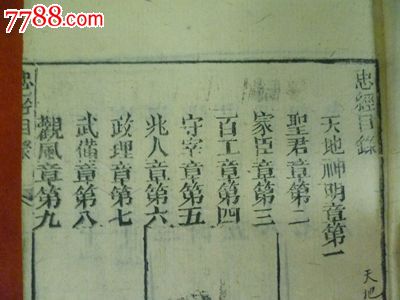 7788.com
忠經目錄
天地神明章第一
聖君章第二
家臣章第三
百工章第四
守宰章第五
兆人章第六
政理章第七
武備章第八
觀風章第九
忠經目錄
天地